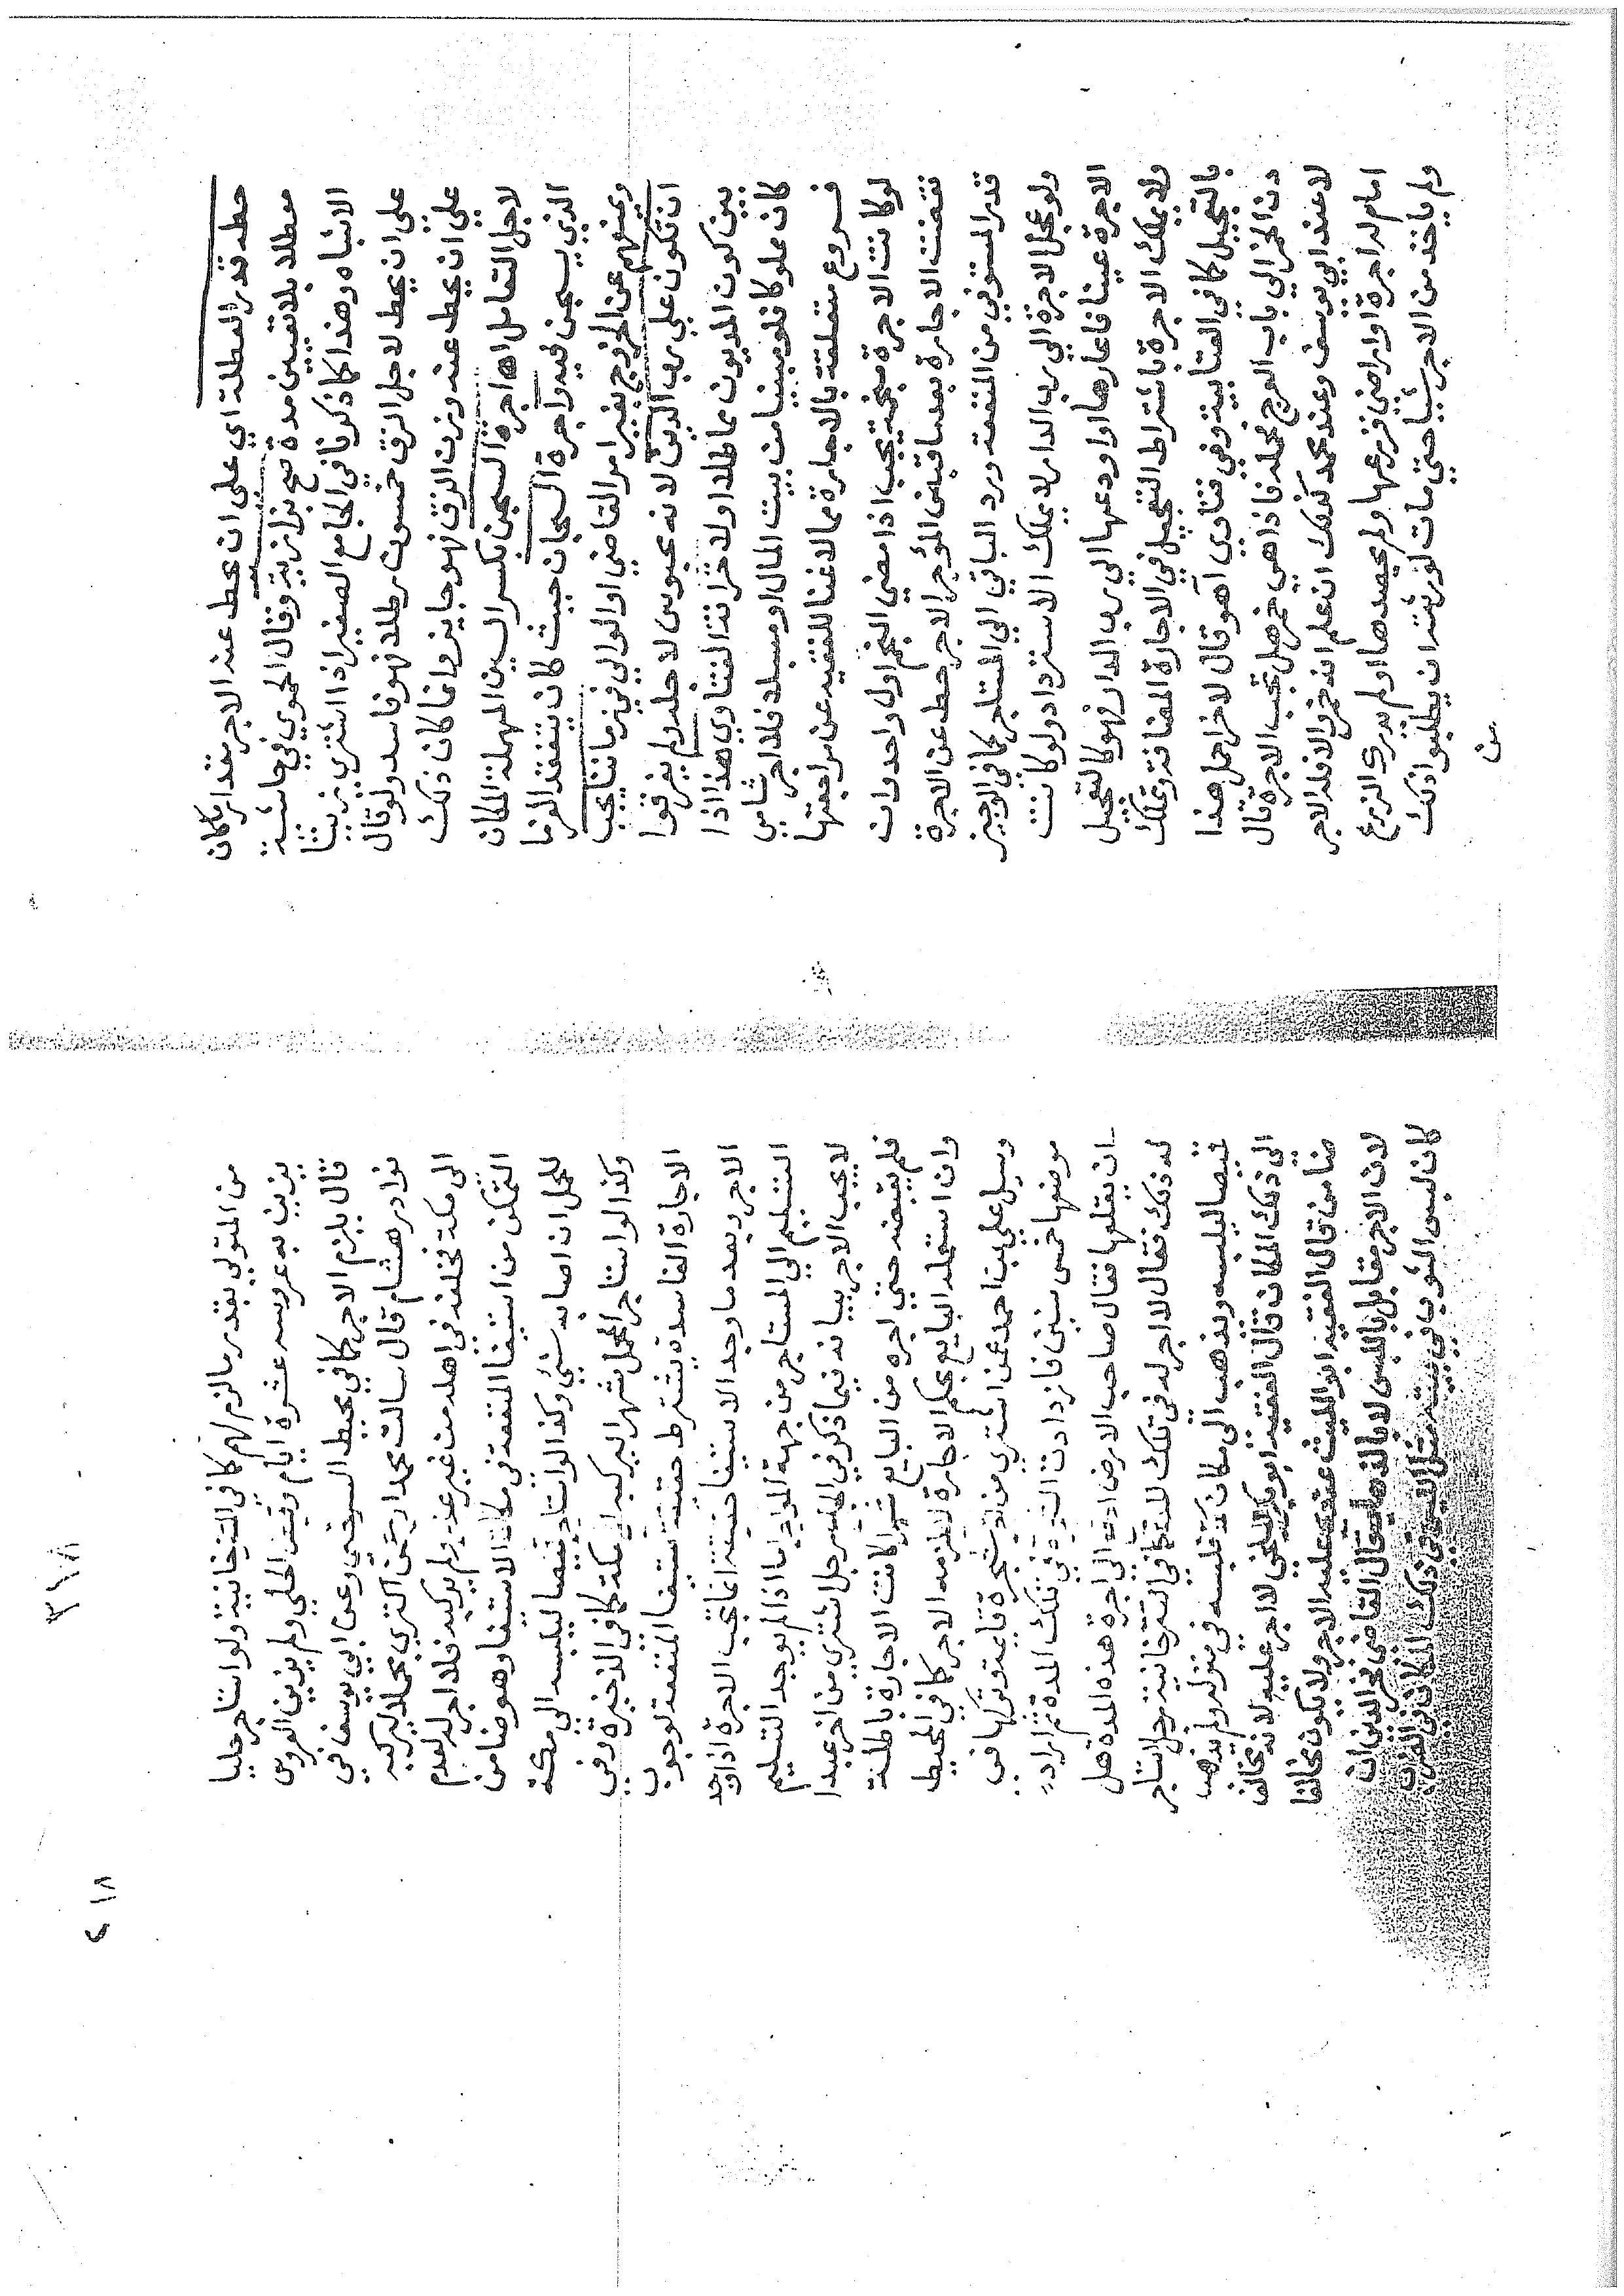 حطه قدر العطلة اي على ان يحط عنه الاجر بمقدار ماكان
معطلا بلا تعيين مدة صح بزازية وقال الحموي في حاشية
الاشباه وهذا كما ذكرنا في الجامع الصغير اذا اشترى زيتا
على ان يحط لاجل الزق خمسون رطلا فهو فاسد ولو قال
على ان يحط عنه وزن الزق فهو جايز وانما كان ذلك
لاجل التعامل اه اجرة السجن بكسر السين المهملة المكان
الذي يسجن فيه واجرة السجان حيث كان يتفقد الغرما
ويمنعهم عن الخروج بغير امر القاضي او الوالي في زماننا يجب
ان تكون على رب الدين لانه محبوس لاجله ولم يفرقوا
بين كون المديون مماطلا او لا خزانة الفتاوي هذا اذا
كان مملوكا فلو مبنيا من بيت المال او مسبلة فلا اجر شامي
فروع متعلقة بالاجارة مما لا غنا للفقيه عن مراجعتها
تفسخت الاجارة بعدما قبض المؤجر الاجر حط عن الاجرة
لو كانت الاجرة منجمة يجب اذا مضى النجم اول واحد وان
قدر المستوفي من المنفعة ورد الباقي الى المستاجر كما في الوجيز
ولو عجل الاجرة الى رب الدار لا يملك الاسترداد ولو كانت
الاجرة عينا فاعارها او اودعها الى رب الدار فهو كالتعجيل
ولا يملك الاجرة باشتراط التعجيل في الاجارة المضافة وتملك
بالتعجيل كما في العتابية وفي فتاوي آهو قال لاخر احمل هذا
دن الخمر الى باب الفرج فحمله فاذا هي خمر هل تجب الاجرة قال
لا عند ابي يوسف وعند محمد كذلك ان علم انه خمر والا فله الاجر
امام له اجرة اوراضي فزرعها ولم يحصدها او لم يدرك الزرع
ولم ياخذ من الاجر شيا حتى مات لورثته ان يطلبوا ذلك
من
من المتولي بقدر ما لزم لهم كما في التترخانية ولو استاجر حليا
يزين به عروسه عشرة ايام وقبض الحلي ولم يزين العروس
قال يلزم الاجر كما في محيط السرخسي وعن ابي يوسف في
نوادر هشام قال سالت محمدا رحل اكترى محملا ليركبه
الى مكة فخلفه في اهله من غير عذر ولم يركبه فلا اجر له لعدم
التمكن من استيفا المنفعة في مكان الاستيفا وهو ضامن
للحمل ان اصابه شيء وكذا لو استاجر قيصا ليلبسه الى مكة
وكذا لو استاجر المحمل شهرا ليركبه الى مكة كما في الذخيرة وفي
الاجارة الفاسدة يشترط حقيقة استيفا المنفعة لوجوب
الاجر وبعد ما وجد الاستيفا حقيقة انما تجب الاجرة اذا وجد
التسليم الى المستاجر من جهة المواجر اما اذا لم يوجد التسليم
لا يجب الاجر بيانه فيما ذكر في رجل اشترى من اخر عبدا
فلم يقبضه حتى اجره من البايع شهرا كانت الاجارة باطلة
وان استعمله البايع بحكم الاجارة لا يلزمه الاجر كما في المحيط
وسيل علي بن احمد عمن اشترى من اخر شجرة قايمة وتركها في
موضعها خمس سنين فازدادت الشجرة في تلك المدة ثم اراد
ان يقلعها فقال صاحب الارض ادفع الي اجرة هذه المدة هل
له ذلك فقال لا اجر له في تلك المدة كما في التترخانية رجل استاجر
قيصا ليلبسه ويذهب الى مكان كذا فلبسه في منزله ولم يذهب
الى ذلك المكان قال الفقيه ابو بكر البلخي لا اجر عليه لانه مخالف
ضامن قال الفقيه ابو الليث عندي عليه الاجر ولا يكون مخالفا
لان الاجر مقابل باللبس لا بالذهاب قال القاضي فخر الدين ان
كان لبس الثوب في بيته مثل اللبس في ذلك المكان في الضرر